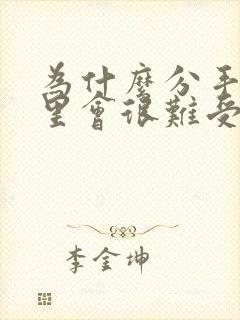 為什麼分手
里會很難受
李金坤